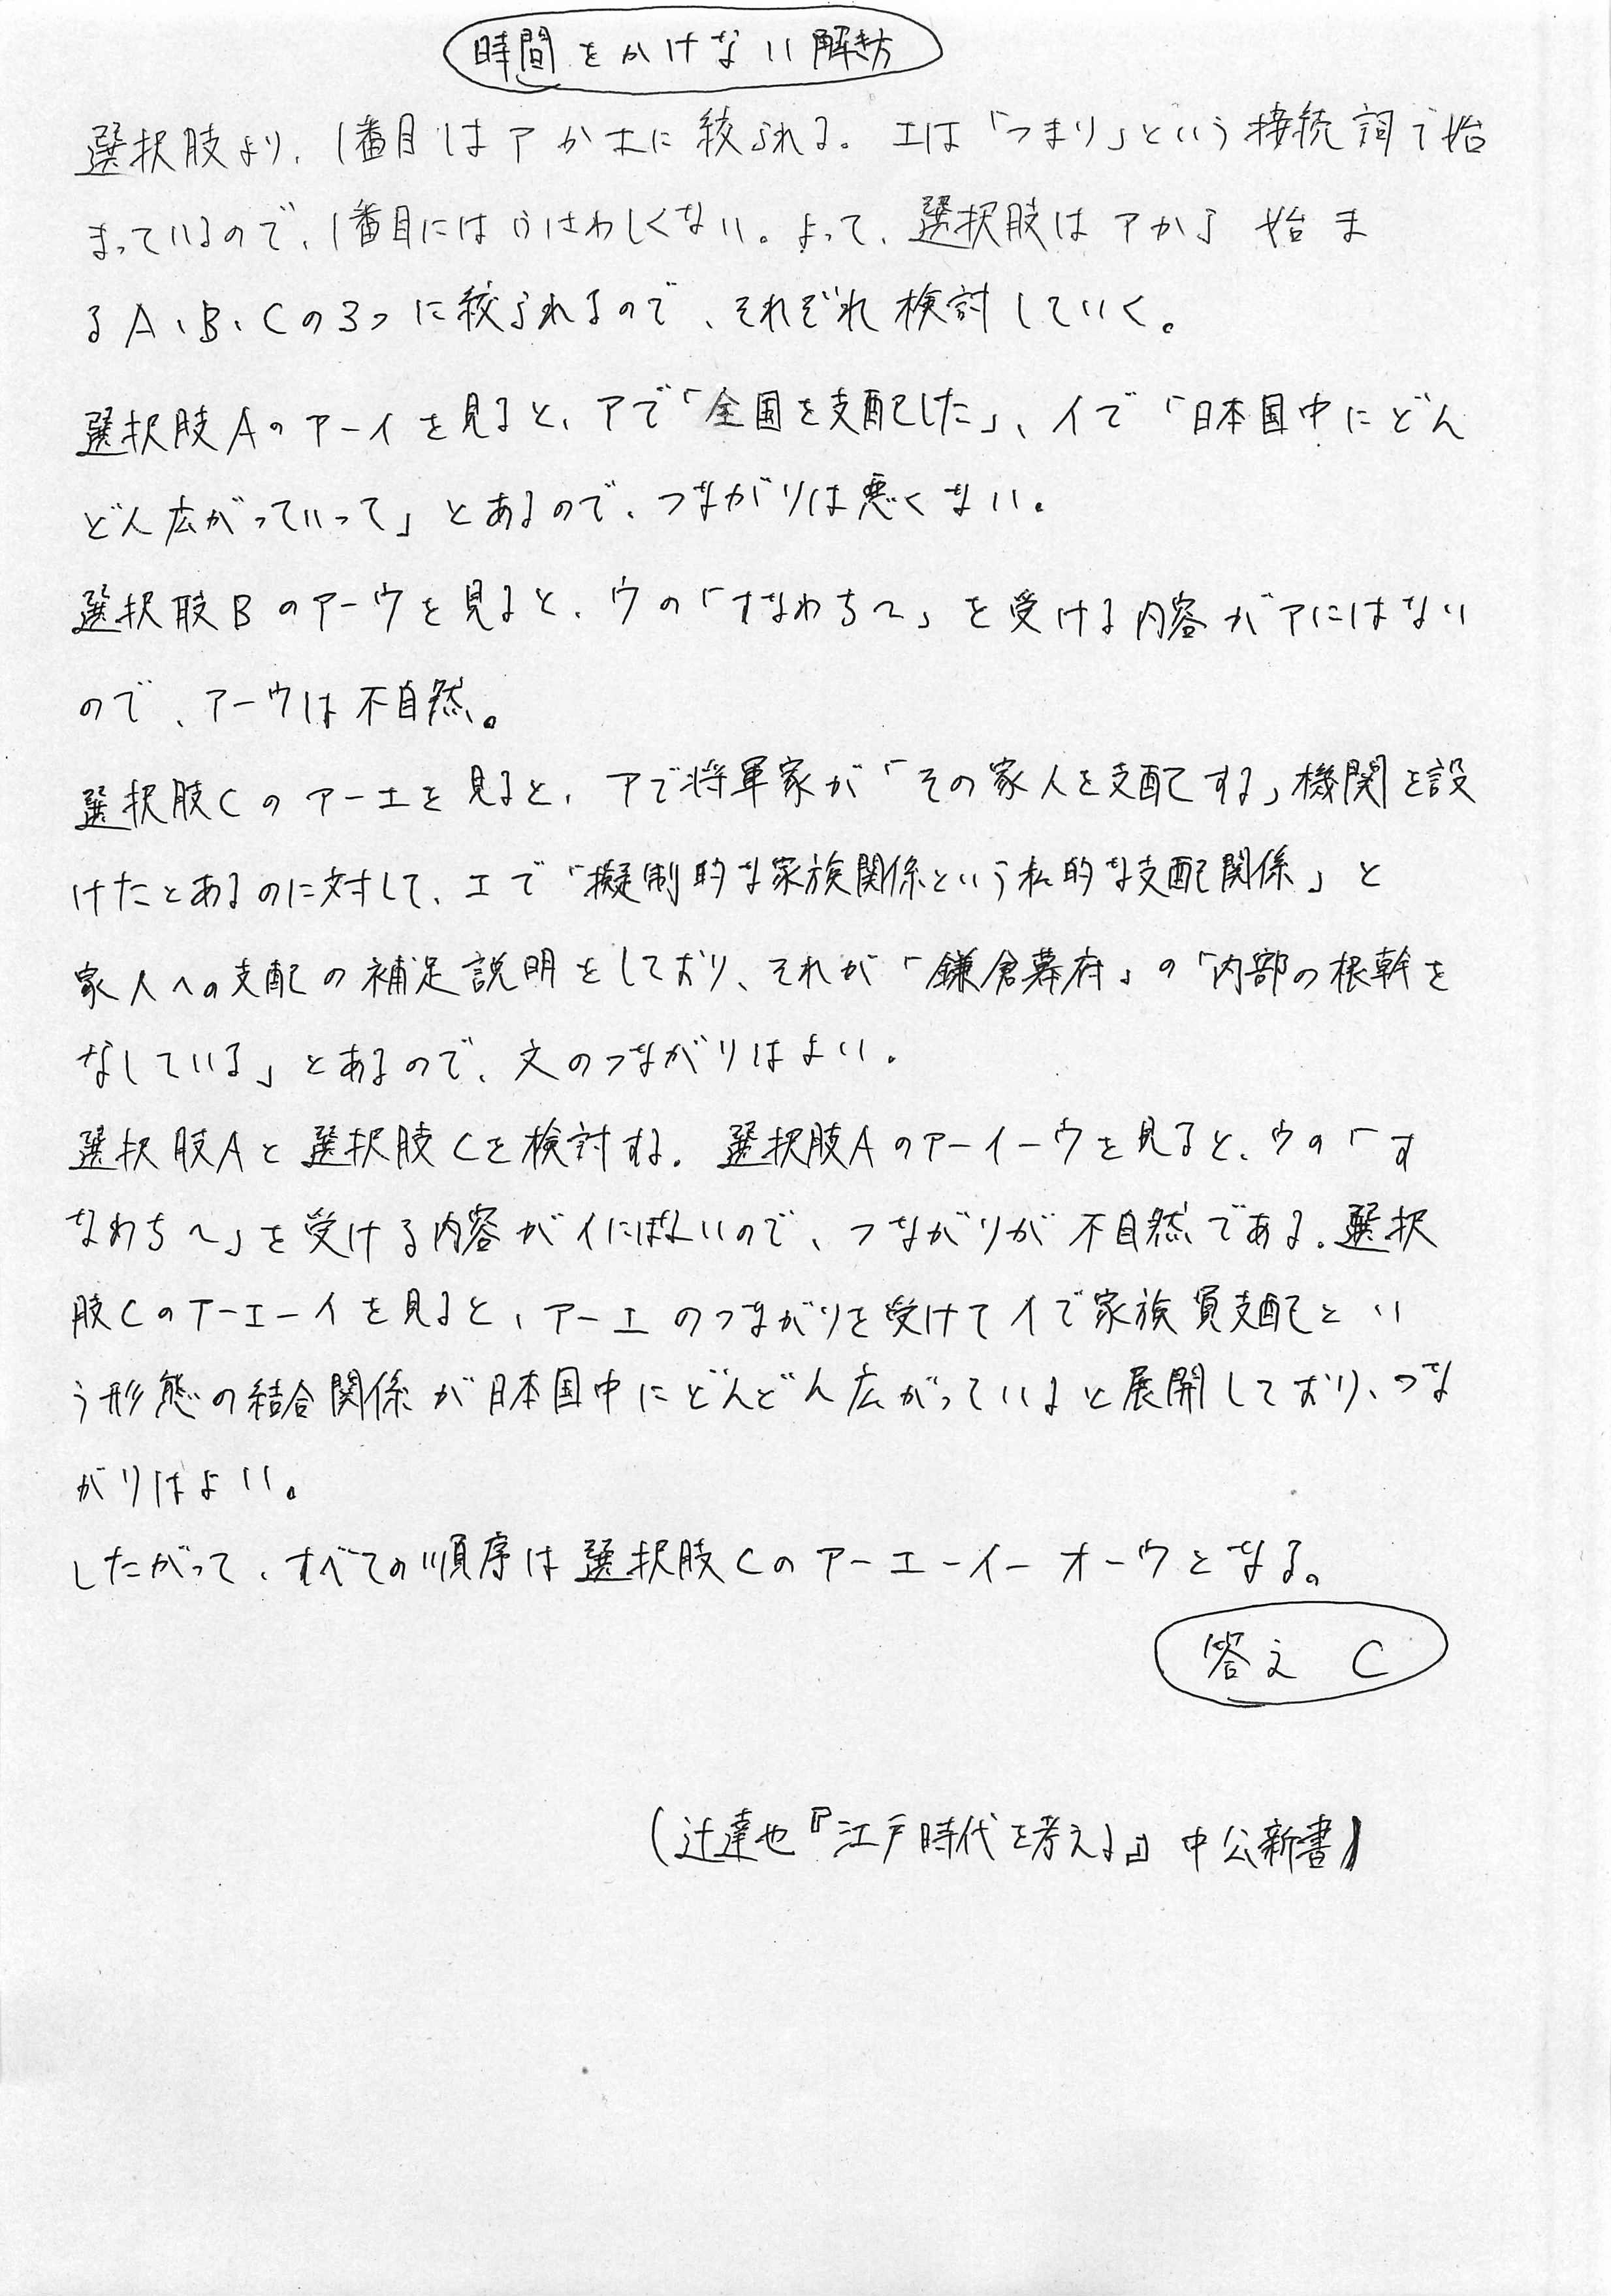 時間をかけない解き方
選択肢より、1番目はアかエに絞られる。エは「つまり」という接続詞で始
まっているので、1番目にはふさわしくない。よって、選択肢はアから始ま
るA、B、Cの3つに絞られるので、それぞれ検討していく。
選択肢Aのアーイを見ると、アで「全国を支配した」、イで「日本国中にどん
どん広がっていって」とあるので、つながりは悪くない。
選択肢Bのアーウを見ると、ウの「すなわち〜」を受ける内容がアにはない
ので、アーウは不自然。
選択肢Cのアーエを見ると、アで将軍家が「その家人を支配する」機関を設
けたとあるのに対して、エで「擬制的な家族関係という私的な支配関係」と
家人への支配の補足説明をしており、それが「鎌倉幕府」の「内部の根幹を
なしている」とあるので、文のつながりはよい。
選択肢Aと選択肢Cを検討する。選択肢Aのアーイーウを見ると、ウの「す
なわち〜」を受ける内容がイにはないので、つながりが不自然である。選択
肢Cのアーエーイを見ると、アーエのつながりを受けてイで家族員支配とい
う形態の結合関係が日本国中にどんどん広がっていると展開しており、つな
がりはよい。
したがって、すべての順序は選択肢Cのアーエーイーオーウとなる。
答え C
(辻達也『江戸時代を考える』中公新書)